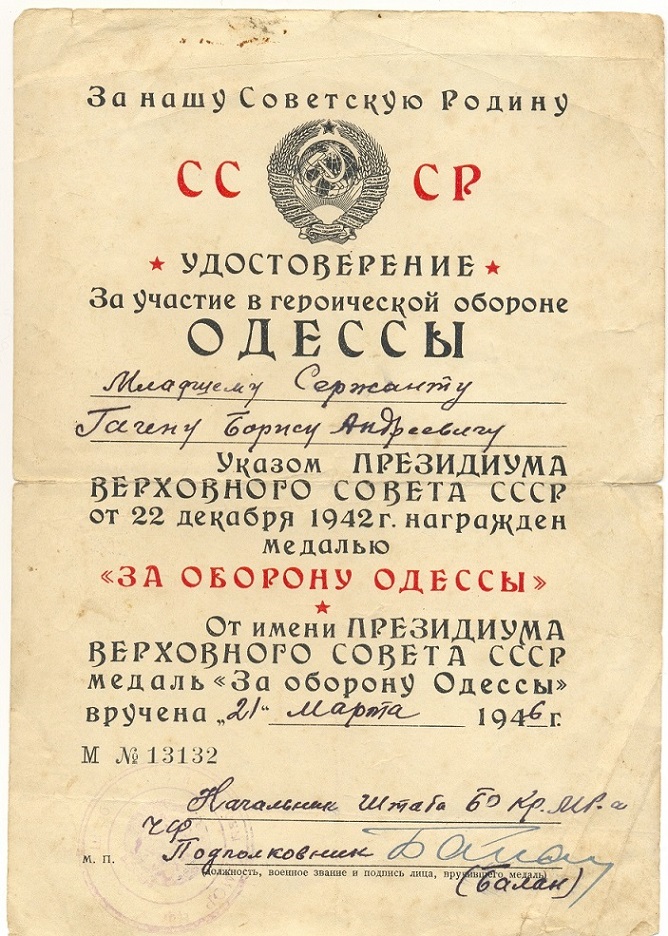 За нашу Советскую Родину
СС СР
УДОСТОВЕРЕНИЕ
За участие в героической обороне
ОДЕССЫ
Младшему Сержанту
Гагену Борису Андреевичу
Указом ПРЕЗИДИУМА
ВЕРХОВНОГО СОВЕТА СССР
от 22 декабря 1942 г. награжден
медалью
«ЗА ОБОРОНУ ОДЕССЫ»
От имени ПРЕЗИДИУМА
ВЕРХОВНОГО СОВЕТА СССР
медаль «За оборону Одессы»
вручена „21“ марта 1946 г.
М № 13132
Начальник Штаба БО Кр. МР-а
ЧФ
Подполковник
м. п.
(должность, военное звание и подпись лица, вручившего медаль)
(Балан)